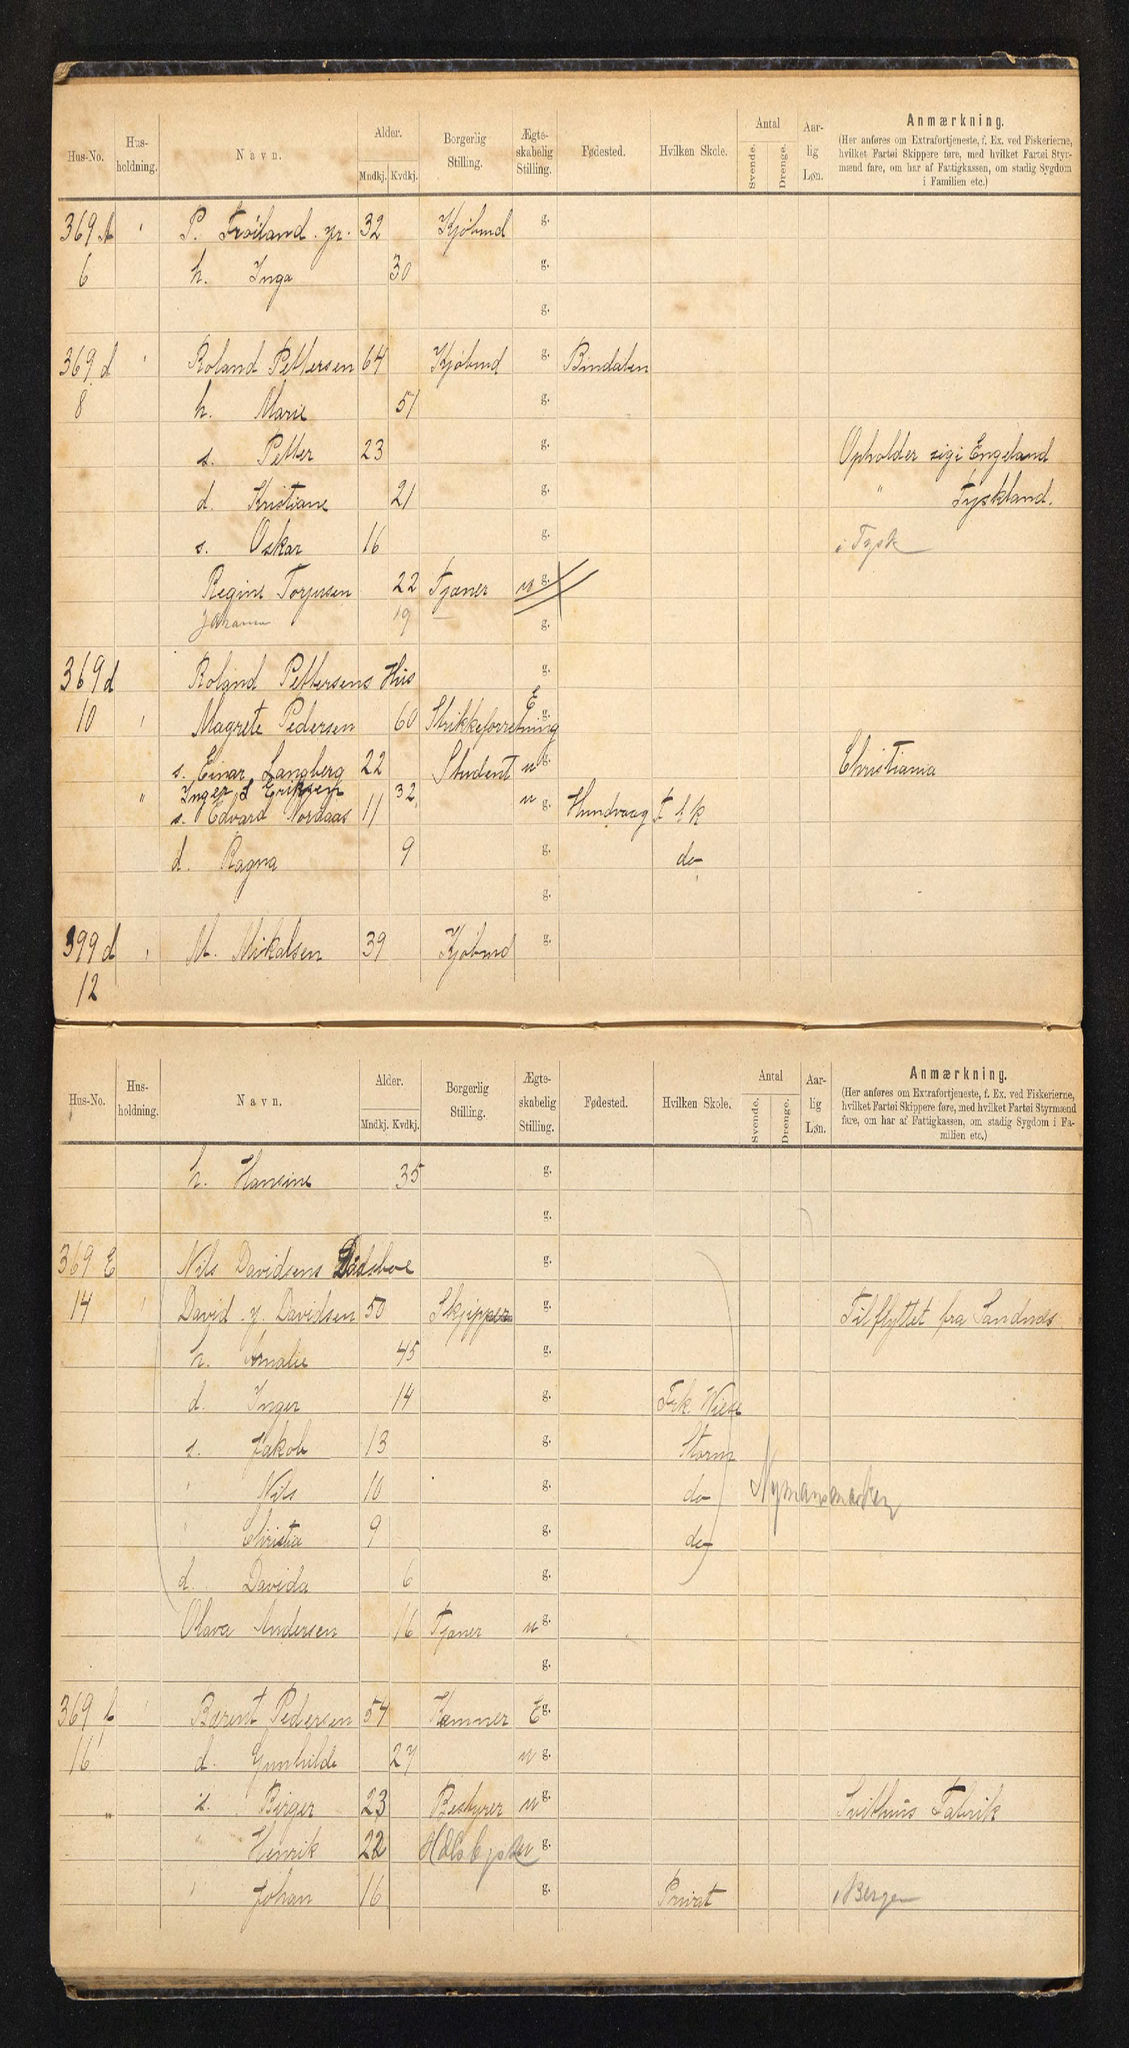 Hus-No. Husholdning. Navn. Alder. Mndkj. Kvdkj. Borgerlig Stilling. Ægteskabelig Stilling. Fødested. Hvilken Skole. Antal Svende. Drenge. Aarlig Løn. Anmærkning.
(Her anføres om Extrafortjeneste, f. Ex. ved Fiskerierne,
hvilket Fartøi Skippere føre, med hvilket Fartøi Styr-
mænd fare, om har af Fattigkassen, om stadig Sygdom
i Familien etc.)
369 " P. Frøiland. jr. 32 Kjøbmd g.
6 h. Inga 30 g.
g.
369 d " Roland Pettersen 64 Kjøbmd g. Bindalen
8 h. Marie 51 g.
s. Petter 23 g. Opholder sig i Engeland
d. Kristiane 21 g. " Tyskland.
s. Oskar 16 g. i Tysk
Regine Torjersen 22 Tjæner u g.
Johanna 19 — g.
369 d Roland Pettersens Hus g.
10 " Magrete Pedersen 60 Strikkeforretning E g.
s. Einar Langberg 22 Student u g. Christiania
" Inger Eriksen 32
s. Edvard Nordaas 11 u g. Hundvaag
d. Ragna 9 g. do
g.
399 d " M. Mikalsen 39 Kjøbmd g.
12
Hus-No. Husholdning. Navn. Alder. Mndkj. Kvdkj. Borgerlig Stilling. Ægteskabelig Stilling. Fødested. Hvilken Skole. Antal Svende. Drenge. Aarlig Løn. Anmærkning.
(Her anføres om Extrafortjeneste, f. Ex. ved Fiskerierne,
hvilket Fartøi Skippere føre, med hvilket Fartøi Styrmænd
fare, om har af Fattigkassen, om stadig Sygdom i Fa-
milien etc.)
h. Hansine 35 g.
g.
369 E Nils Davidsens Dødsboe g.
14 " David Davidsen 50 Skipper g. Tilflyttet fra Sandnes
h. Amalie 45 g.
d. Inger 14 g. Frk. Wiese
s. Jakob 13 g. Storm
" Nils 10 g. do Nymansmarken
Christia 9 g. do
d. Davida 6 g.
Olava Andersen 16 Tjæner u g.
g.
369 f " Barent Pedersen 54 Kæmner E g.
16 d. Gunhilde 27 u g.
s. Birger 23 Bestyrer u g. Svithuns Fabrik
" Henrik 22 g.
" Johan 16 g. Privat i Bergen